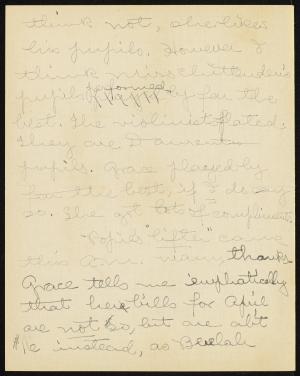 think not, she likes
his pupils. However I
think Miss Chittenden's
pupils performed by far the
best. The violinist flated.
They are D'
pupils. Grace played by
far the best, if I do say
so. She got lots of compliments.
Popils "lifter" came
this a.m. many thanks
Grace tells me emphatically
that her bills for April
are not $o, but are ab't
$1c instead, as Beulah